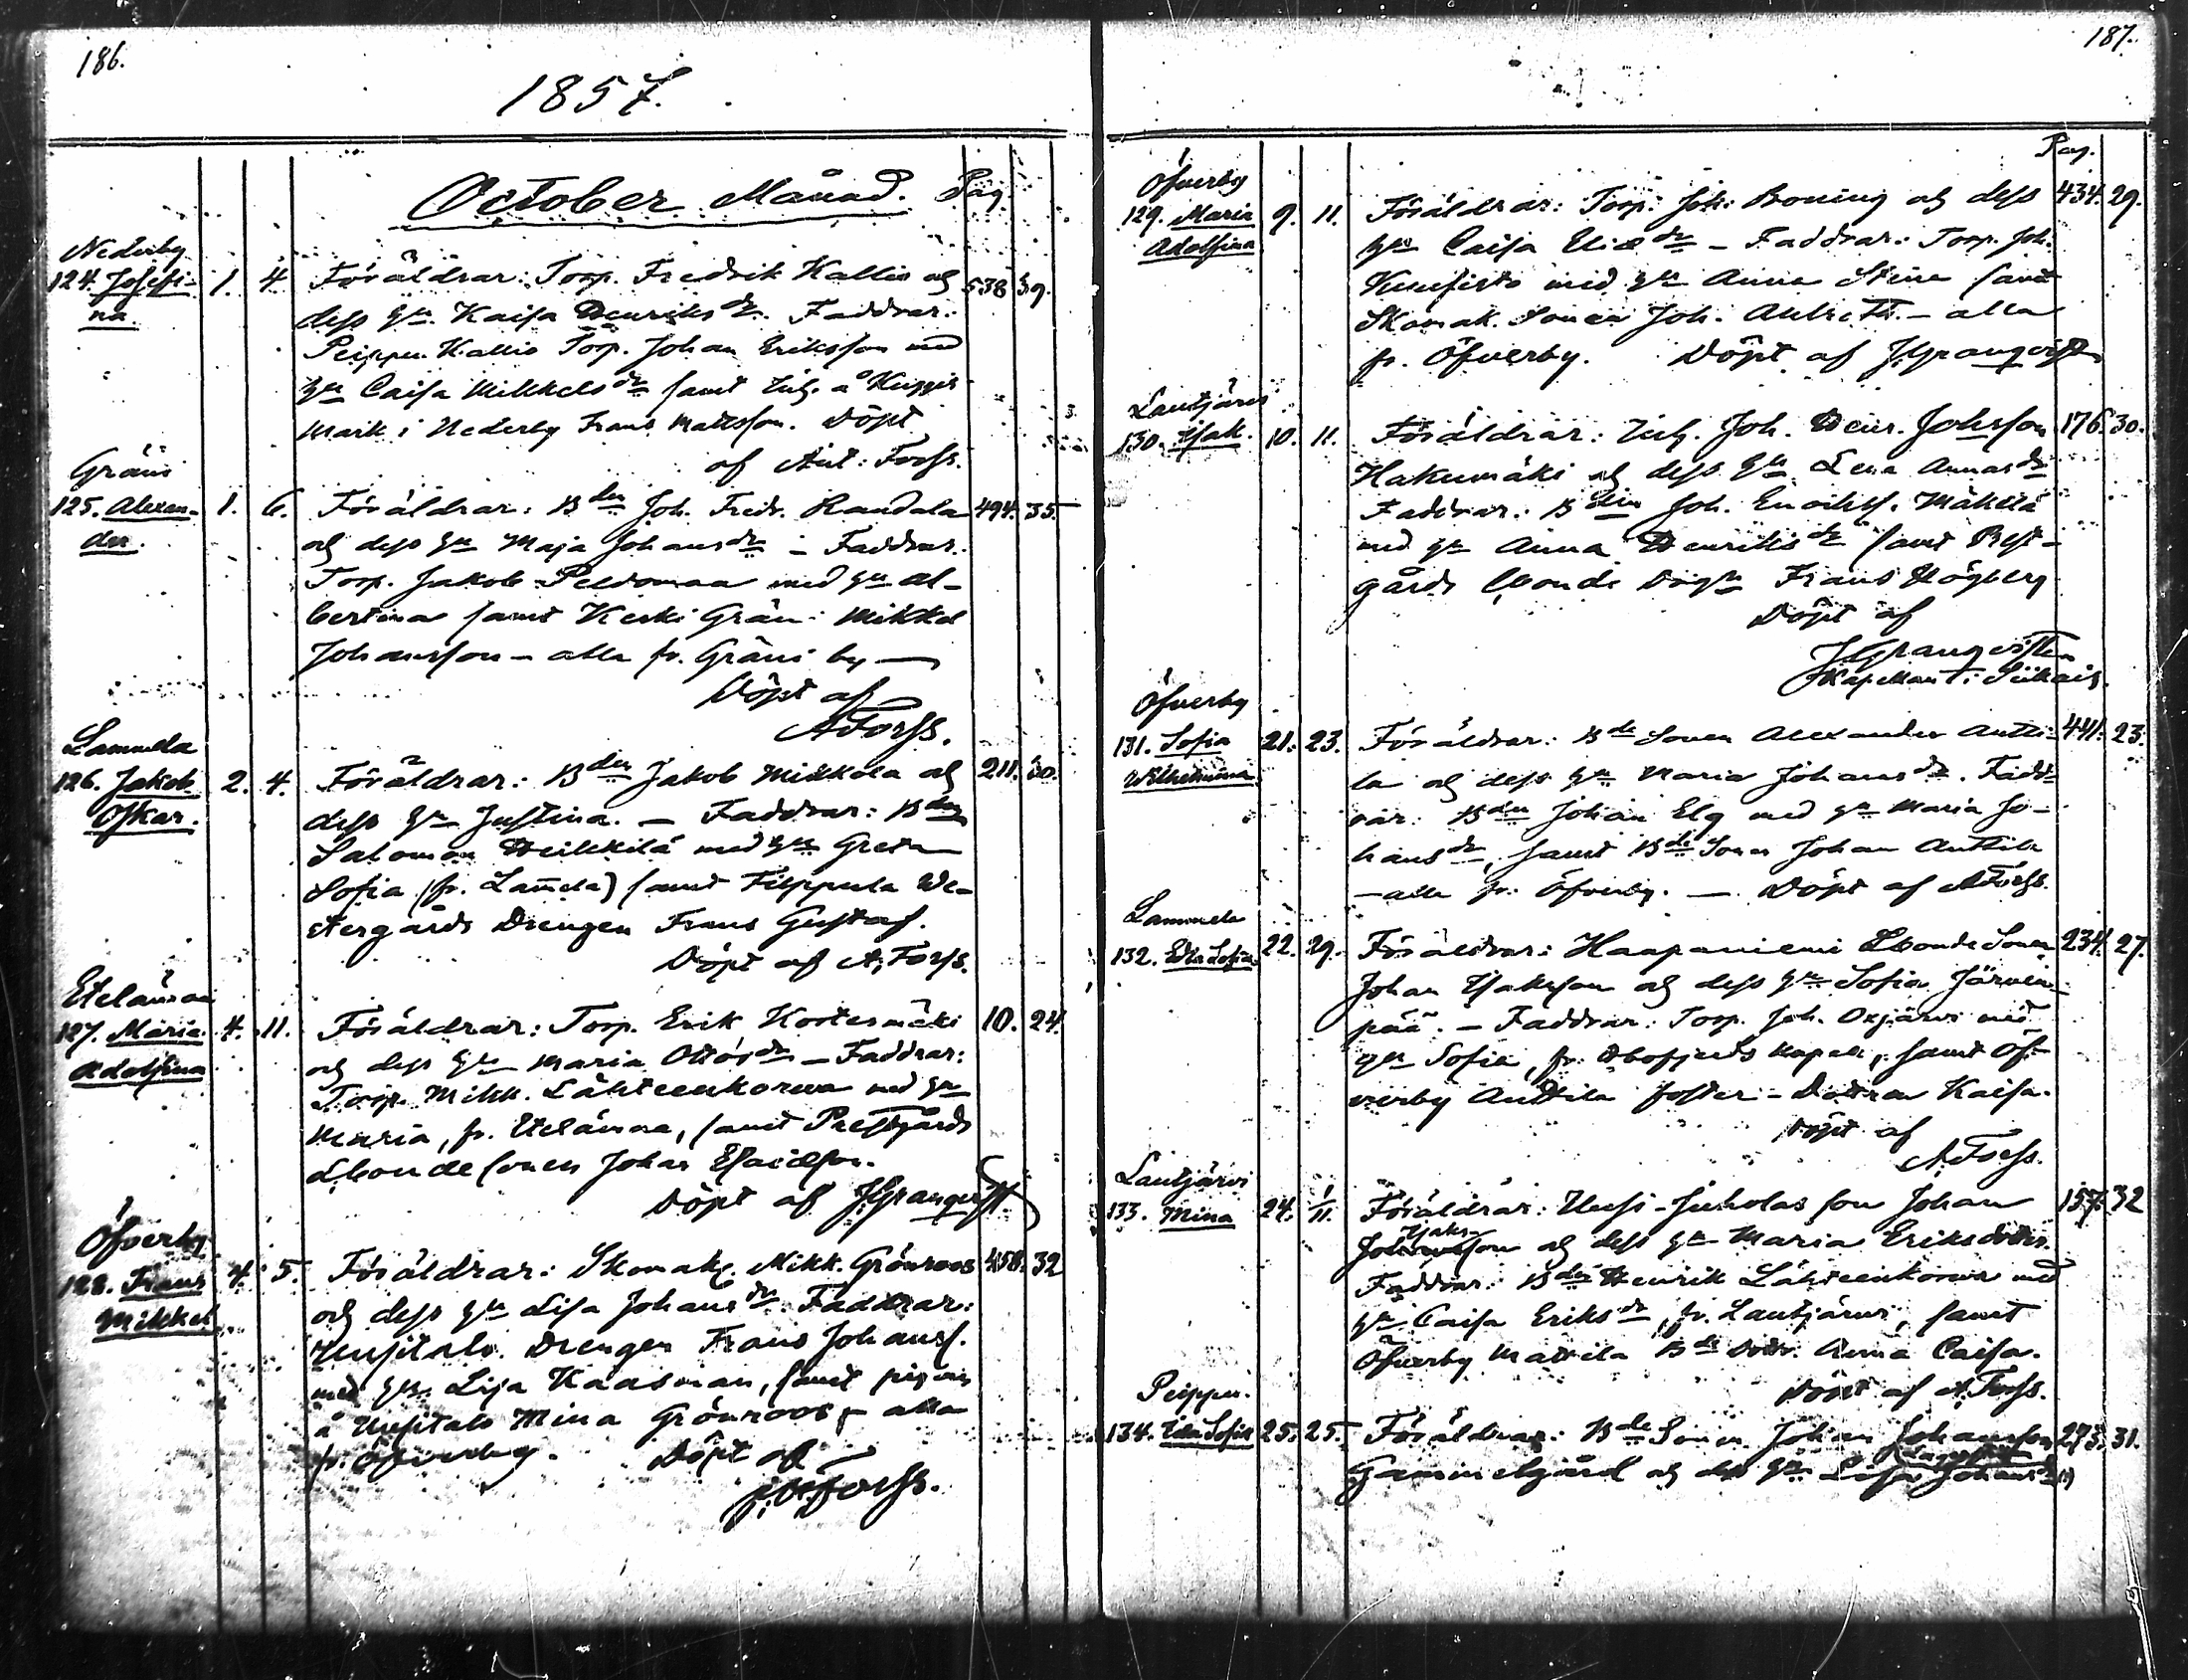 186.
1857.
October Månad. Pag.
Nederby
124. Josefi- 1. 4. Föräldrar: Torp. Fredrik Kallio och 538 39.
na dess hu. Kaisa Henriksdr. Faddrar:
Peippu Kallio Torp. Johan Eriksson med
hu Caisa Mikkelsdr samt Inh. å
mark i Nederby Frans Mattsson. Döpt
af Ant: Forss.
Gräni
125. Alexan- 1. 6. Föräldrar: Bden Joh. Fredr. Randala 494. 35.
der. och dess hu Maja Johansdr – Faddrar:
Torp. Jakob Peldomaa med hu Al-
bertina samt Keski Gräni Mikkel
Johansson – alla fr. Gräni by —
Döpt af
AForss.
Lammela
126. Jakob 2. 4. Föräldrar: Bden Jakob Mikkola och 211. 30.
Oskar. dess hu Justina. – Faddrar: Bden
Salomon Heikkilä med hu Greta
Sofia (fr. Lam̄ela) samt Filppula We-
stergårds Drengen Frans Gustaf.
Döpt af A. Forss.
Etelämaa
127. Maria 4. 11. Föräldrar: Torp. Erik Kortesmäki 10. 24.
Adolfina och dess hu Maria Ottosdr – Faddrar:
Torp. Mikk. Lähteenkorwa med hu
Maria, fr. Etelämaa, samt Prestgårds
Lbonde sonen Johan Esaiasson.
Döpt af JGranqvist.
Öfverby
128. Frans 4. 5. Föräldrar: Skomak. Mikk. Grönroos 458. 32
Mikkel och dess hu Lisa Johansdr. Faddrar:
Uusitalo Drengen Frans Johanss.
med hu Lisa Kaasman, samt pigan
å Uusitalo Mina Grönroos – alla
fr. Öfverby. Döpt af
Forss.
187.
Pag.
Öfverby
129. Maria 9. 11. Föräldrar: Torp. Joh. Boning och dess 434. 29.
Adolfina hu Caisa Eliædr – Faddrar: Torp. Joh.
med hu Anna Stina samt
Skomak. Sonen Joh. – alla
fr. Öfverby. Döpt af JGranqvist
Lautjärvi
130. Isak. 10. 11. Föräldrar: Inh. Joh. Henr. Johsson 176. 30.
Hakumäki och dess hu Lena Annasdr
Faddrar: Bden Joh. Mäkilä
med hu Anna Henriksdr samt Prest-
gårds Lbonde Frans Högberg
Döpt af
JGranqvist
Kapellan i Siikais.
Öfverby
131. Sofia 21. 23. Föräldrar: Bde Sonen Alexander Antti- 441. 23.
Wilhelmina la och dess hu Maria Johansdr. Fadd-
rar: Bden Johan Elg med hu Maria Jo-
hansdr, samt Bde Sonen Johan Anttila
– alla fr. Öfverby. – Döpt af AForss.
Lammela
132. Eva Sofia 22. 29. Föräldrar: Haapaniemi Lbonde Sonen 234. 27.
Johan Isaksson och dess hu Sofia Järven-
pää. – Faddrar: Torp. Joh. Oxjärvi med
hu Sofia, fr. Hvofjerds kapell, samt Öf-
verby Anttila foster-Dottren Kaisa.
Döpt af
A.Forss.
Lautjärvi
133. Mina 24. 1/11. Föräldrar: Uusi-Juholas son Johan 157. 32
Isaks-
Johansson och dess hu Maria Eriksdotter.
Faddrar: Bden Henrik Lähteenkorwa med
hu Caisa Eriksdr, fr. Lautjärvi, samt
Öfverby Mattila Bde dottr. Anna Caisa.
Döpt af A.Forss.
Peippu.
134. Eva Sofia 25. 25. Föräldrar: Bde Sonen Johan Johansson 273. 31.
Gammelgård och dess hu Lisa Johansdr